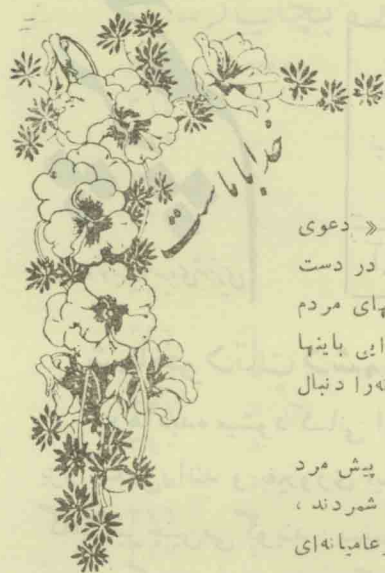 خدا با ماست
« دعوی
در دست
های مردم
ایی باینها
را دنبال
پیش مرد
شمردند ،
عامیانه‌ای